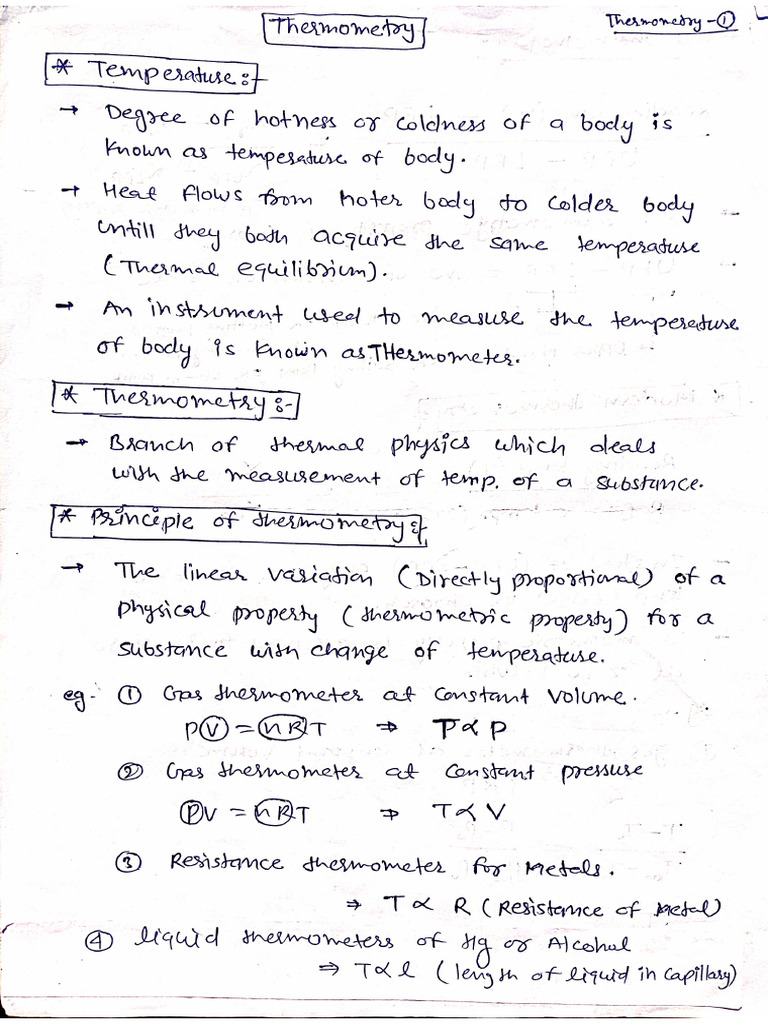 Thermometry
Thermometry-①
* Temperature:-
→ Degree of hotness or coldness of a body is
known as temperature of body.
→ Heat flows from hoter body to colder body
untill they both acquire the same temperature
(Thermal equilibrium).
→ An instrument used to measure the temperature
of body is known as THermometer.
* Thermometry:-
→ Branch of thermal physics which deals
with the measurement of temp. of a substance.
* Principle of thermometry:-
→ The linear variation (Directly proportional) of a
physical property (thermometric property) for a
substance with change of temperature.
eg- ① Gas thermometer at constant volume.
PV = nRT ⇒ T∝P
② Gas thermometer at constant pressure
PV = nRT ⇒ T∝V
③ Resistance thermometer for metals.
⇒ T∝ R (Resistance of metal)
④ liquid thermometers of Hg or Alcohol
⇒ T∝l (length of liquid in capillary)